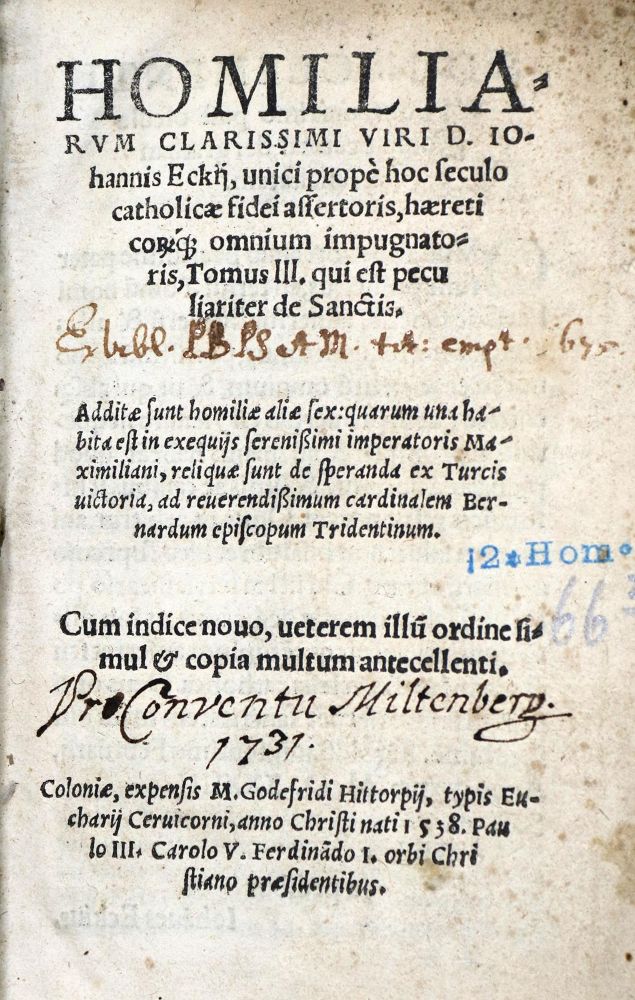 HOMILIA-
RVM CLARISSIMI VIRI D. IO-
hannis Eckij, unici propè hoc seculo
catholicæ fidei assertoris, hæreti
corumq́; omnium impugnato-
ris, Tomus III. qui est pecu
liariter de Sanctis.
Ex bibl. empt.
Additæ sunt homiliæ aliæ sex: quarum una ha-
bita est in exequijs serenißimi imperatoris Ma-
ximiliani, reliquæ sunt de speranda ex Turcis
uictoria, ad reuerendißimum cardinalem Ber-
nardum episcopum Tridentinum.
12 Hom
66
Cum indice nouo, ueterem illũ ordine si-
mul & copia multum antecellenti.
Pro Conventu Miltenberg.
1731.
Coloniæ, expensis M. Godefridi Hittorpij, typis Eu-
charij Ceruicorni, anno Christi nati 1538. Pau
lo III. Carolo V. Ferdinãdo I. orbi Chri
stiano præsidentibus.